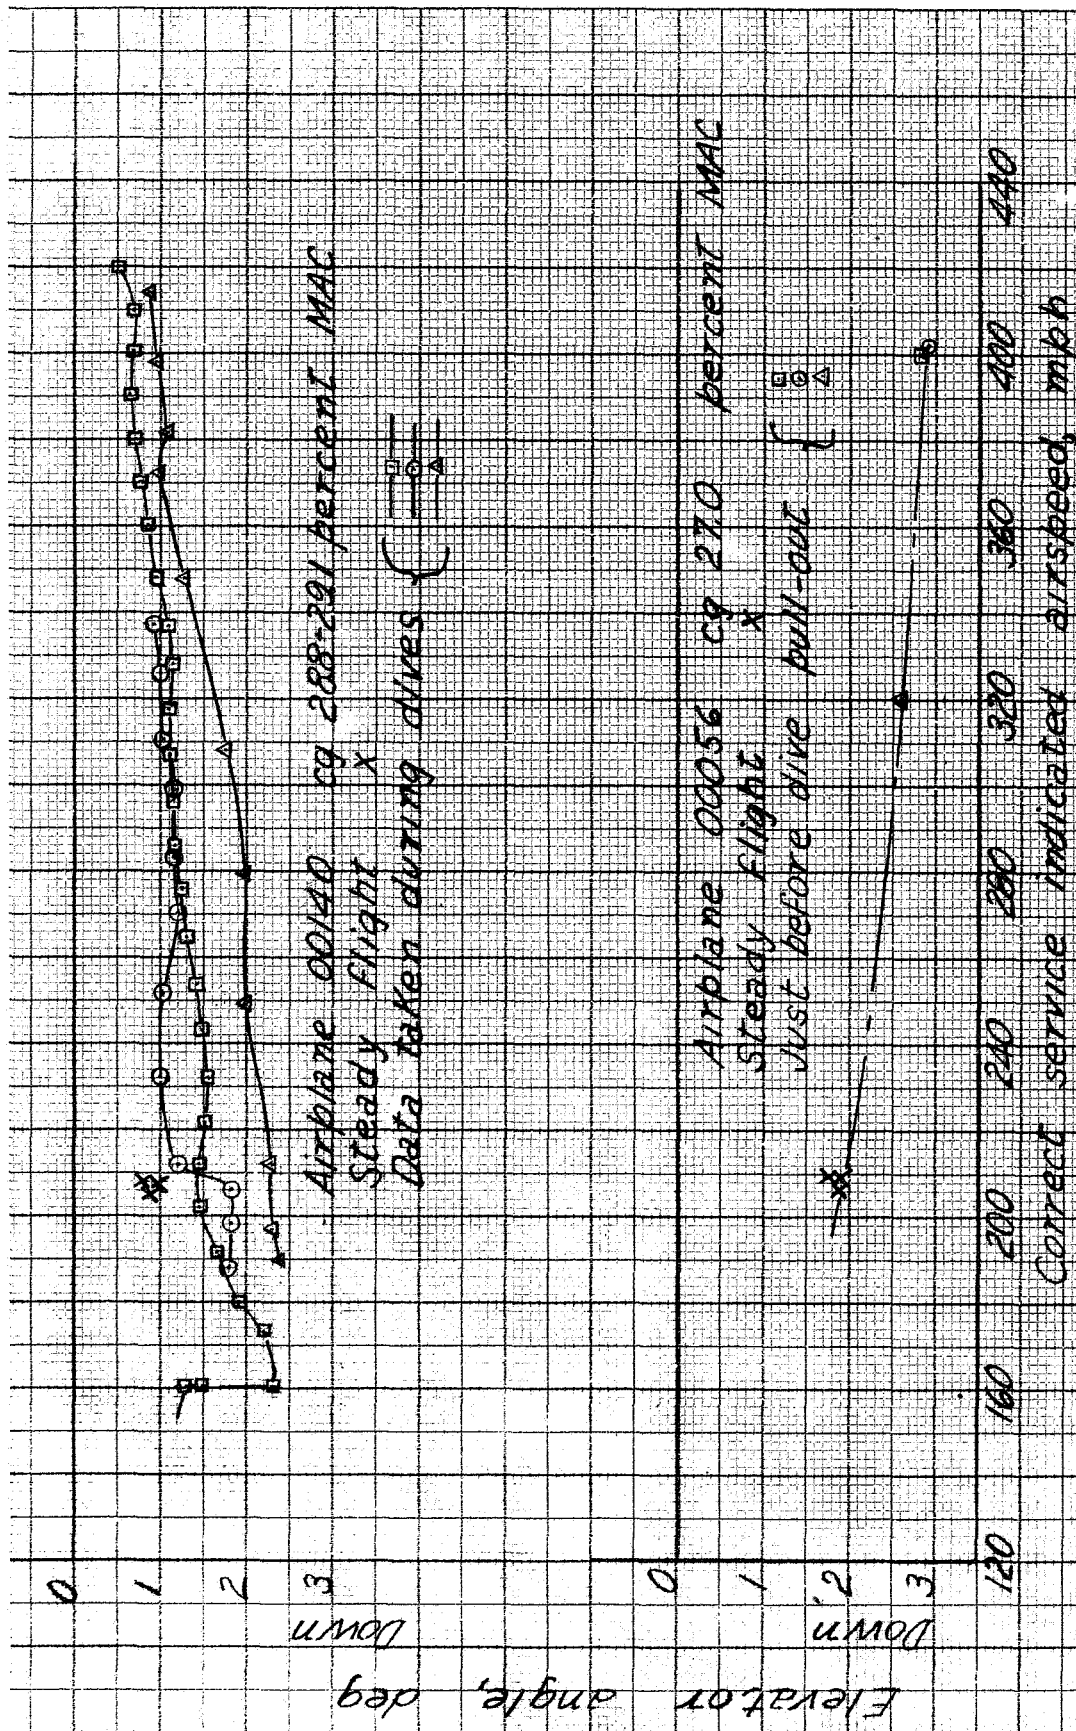 0
1
2
3
Down
Airplane 00140 cg 28.8-29.1 percent MAC
Steady flight x
Data taken during dives {
0
1
2
3
Down
Elevator angle, deg
Airplane 00056 cg 27.0 percent MAC
Steady flight x
Just before dive pull-out {
120 160 200 240 280 320 360 400 440
Correct service indicated airspeed, mph